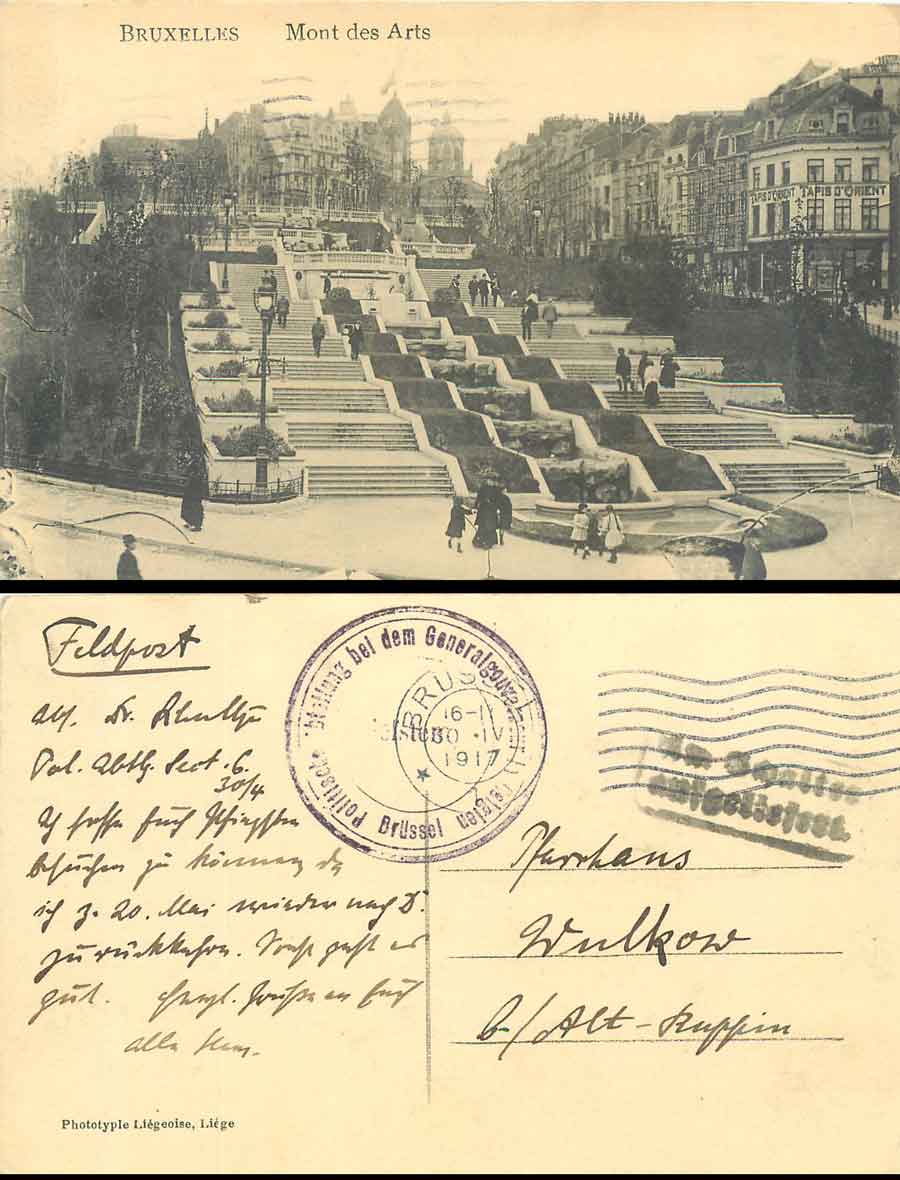 BRUXELLES Mont des Arts
TAPIS D'ORIENT TAPIS D'ORIENT
Feldpost
Politische Abteilung bei dem Generalgouv
Brüssel
BRÜSSEL
16-1
30 IV
1917
Abs. Dr.
Pol. Abtlg. Sect. 6.
30/4
Ich hoffe Euch Pfingsten
besuchen zu können, da
ich z. 20. Mai wieder nach D.
zurückkehre. Sonst geht es
gut. Herzl. Grüße an Euch
alle
Am Schalter
aufgeliefert.
Pfarrhaus
Wulkow
b/ Alt-Ruppin
Phototypie Liégeoise, Liége